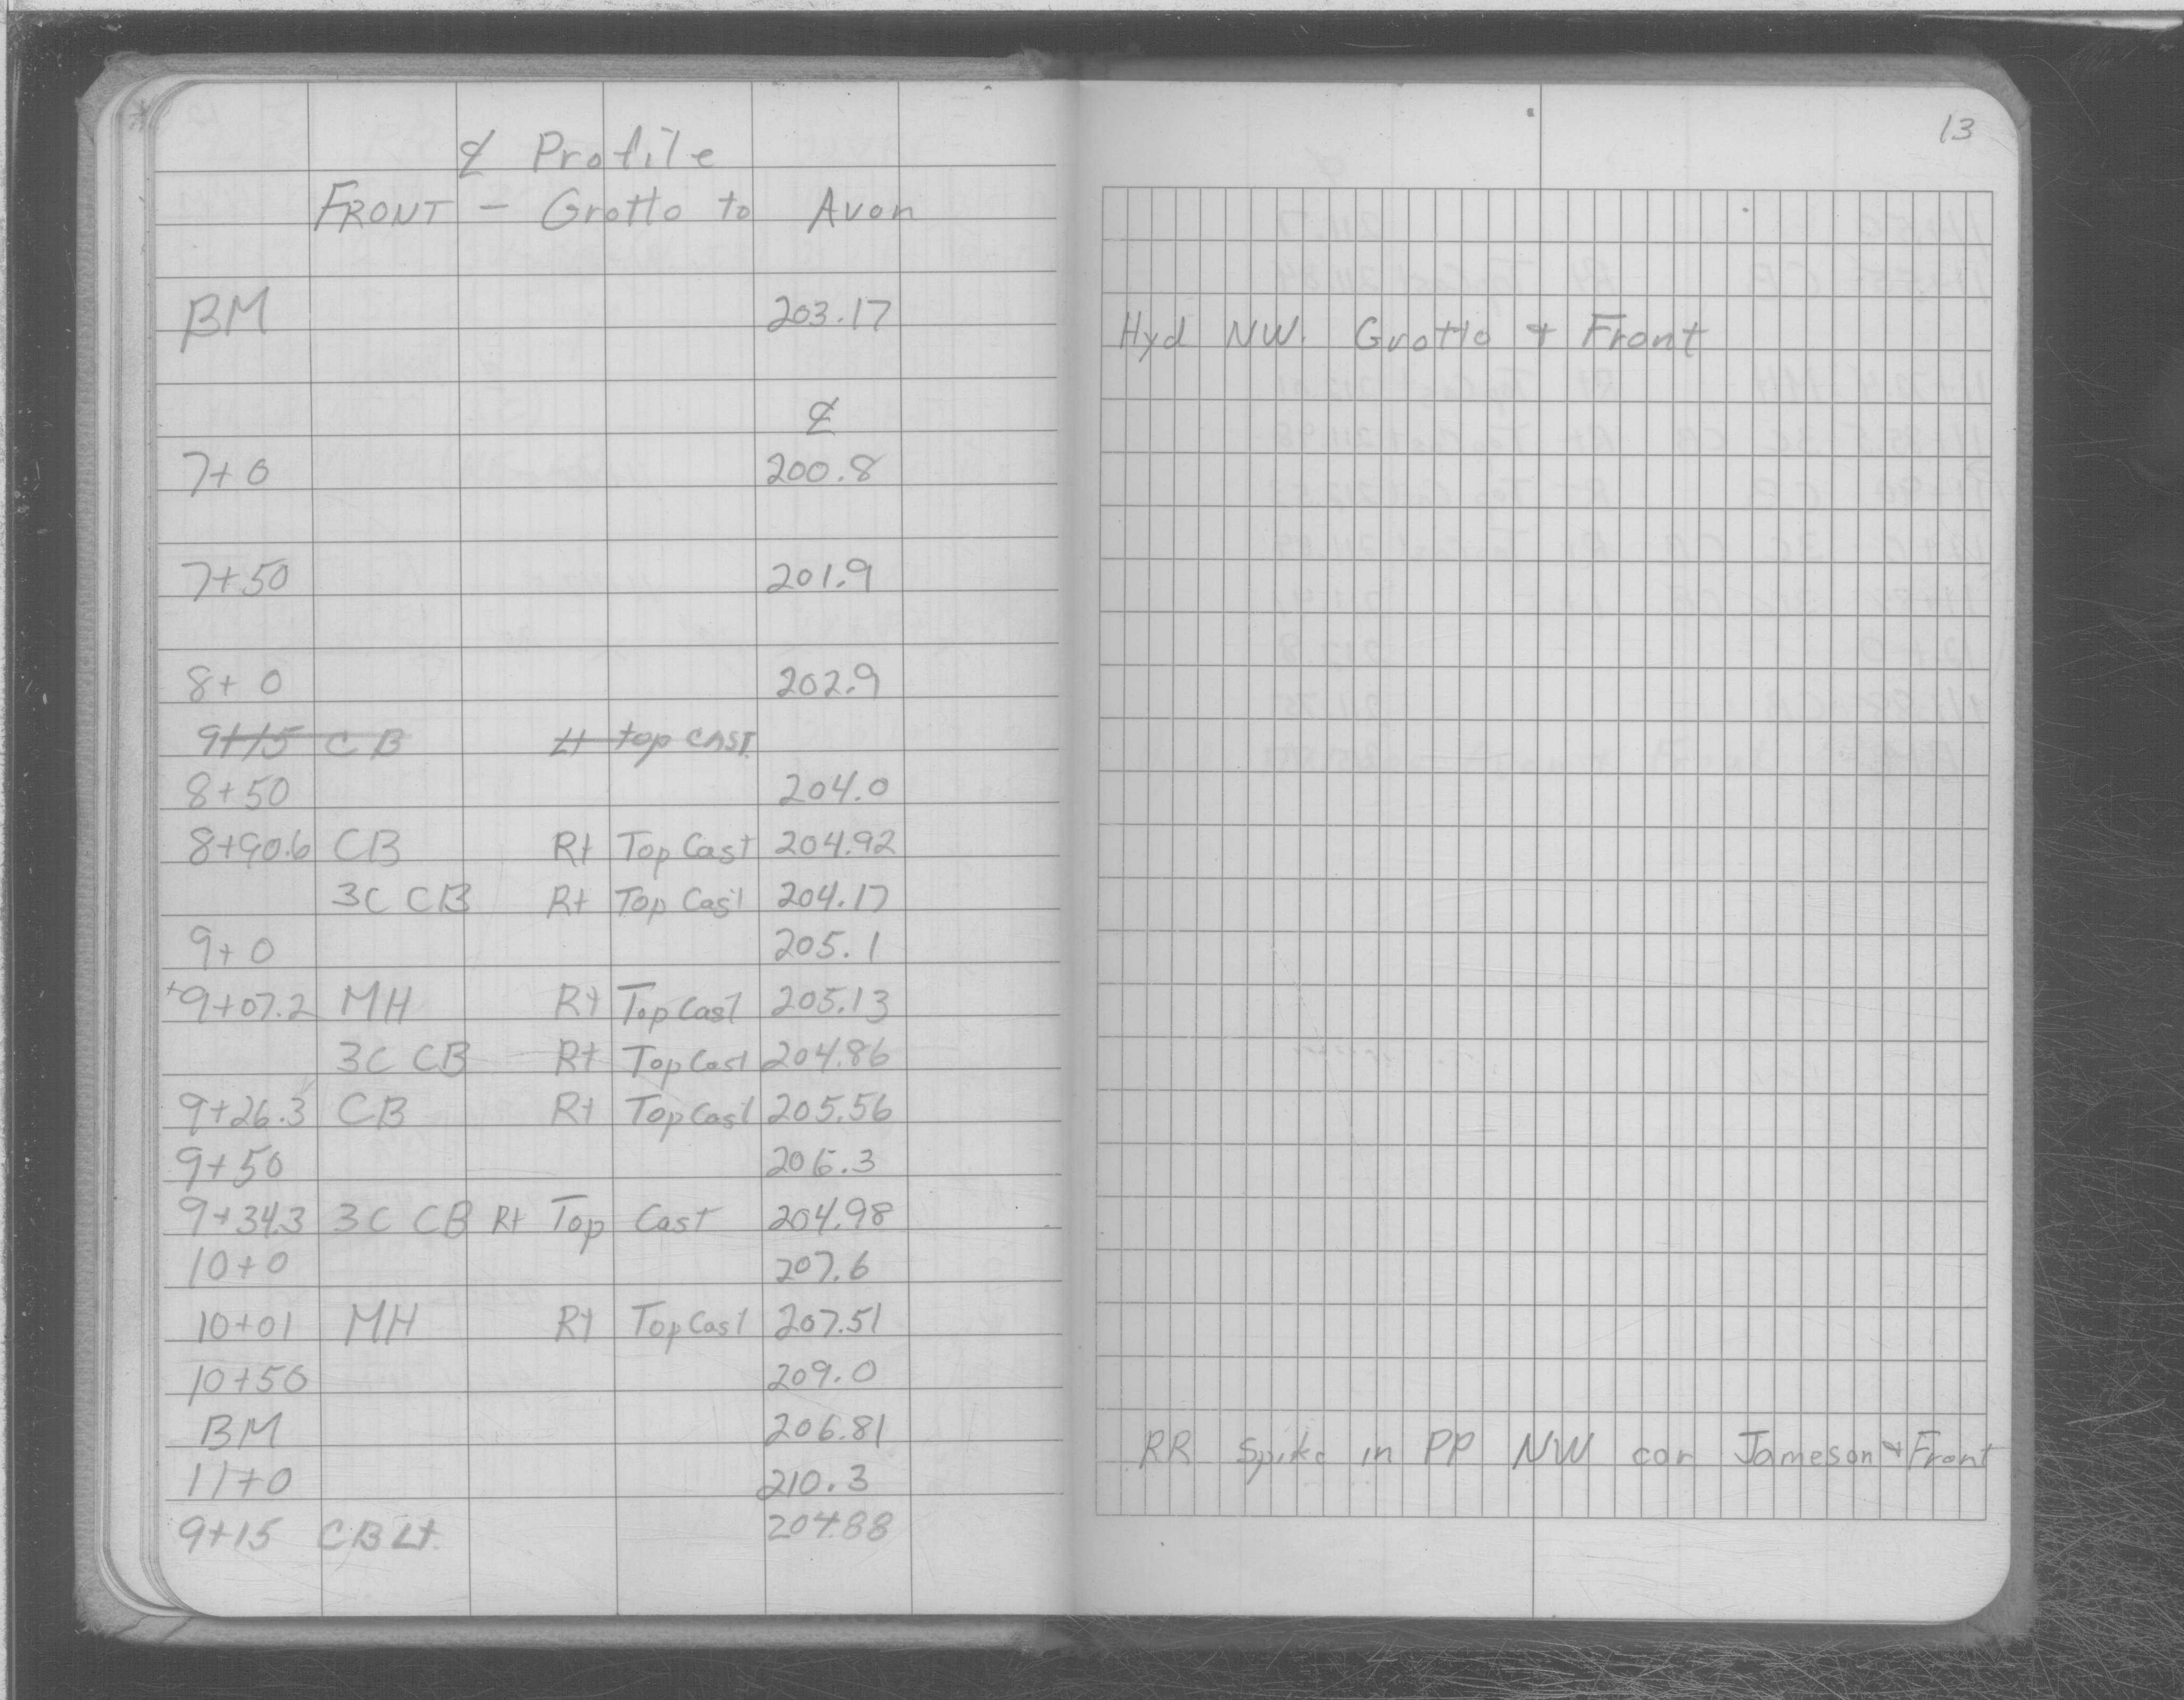 ℄ Profile
FRONT - Grotto to Avon
BM 203.17
℄
7+0 200.8
7+50 201.9
8+0 202.9
9+15 CB Lt top CAST.
8+50 204.0
8+90.6 CB Rt Top Cast 204.92
3C CB Rt Top Cast 204.17
9+0 205.1
+9+07.2 MH Rt Top Cast 205.13
3C CB Rt Top Cast 204.86
9+26.3 CB Rt Top Cast 205.56
9+50 206.3
9+34.3 3C CB Rt Top Cast 204.98
10+0 207.6
10+01 MH Rt Top Cast 207.51
10+50 209.0
BM 206.81
11+0 210.3
9+15 CB Lt. 204.88
13
Hyd NW. Grotto + Front
RR Spike in PP NW cor Jameson + Front